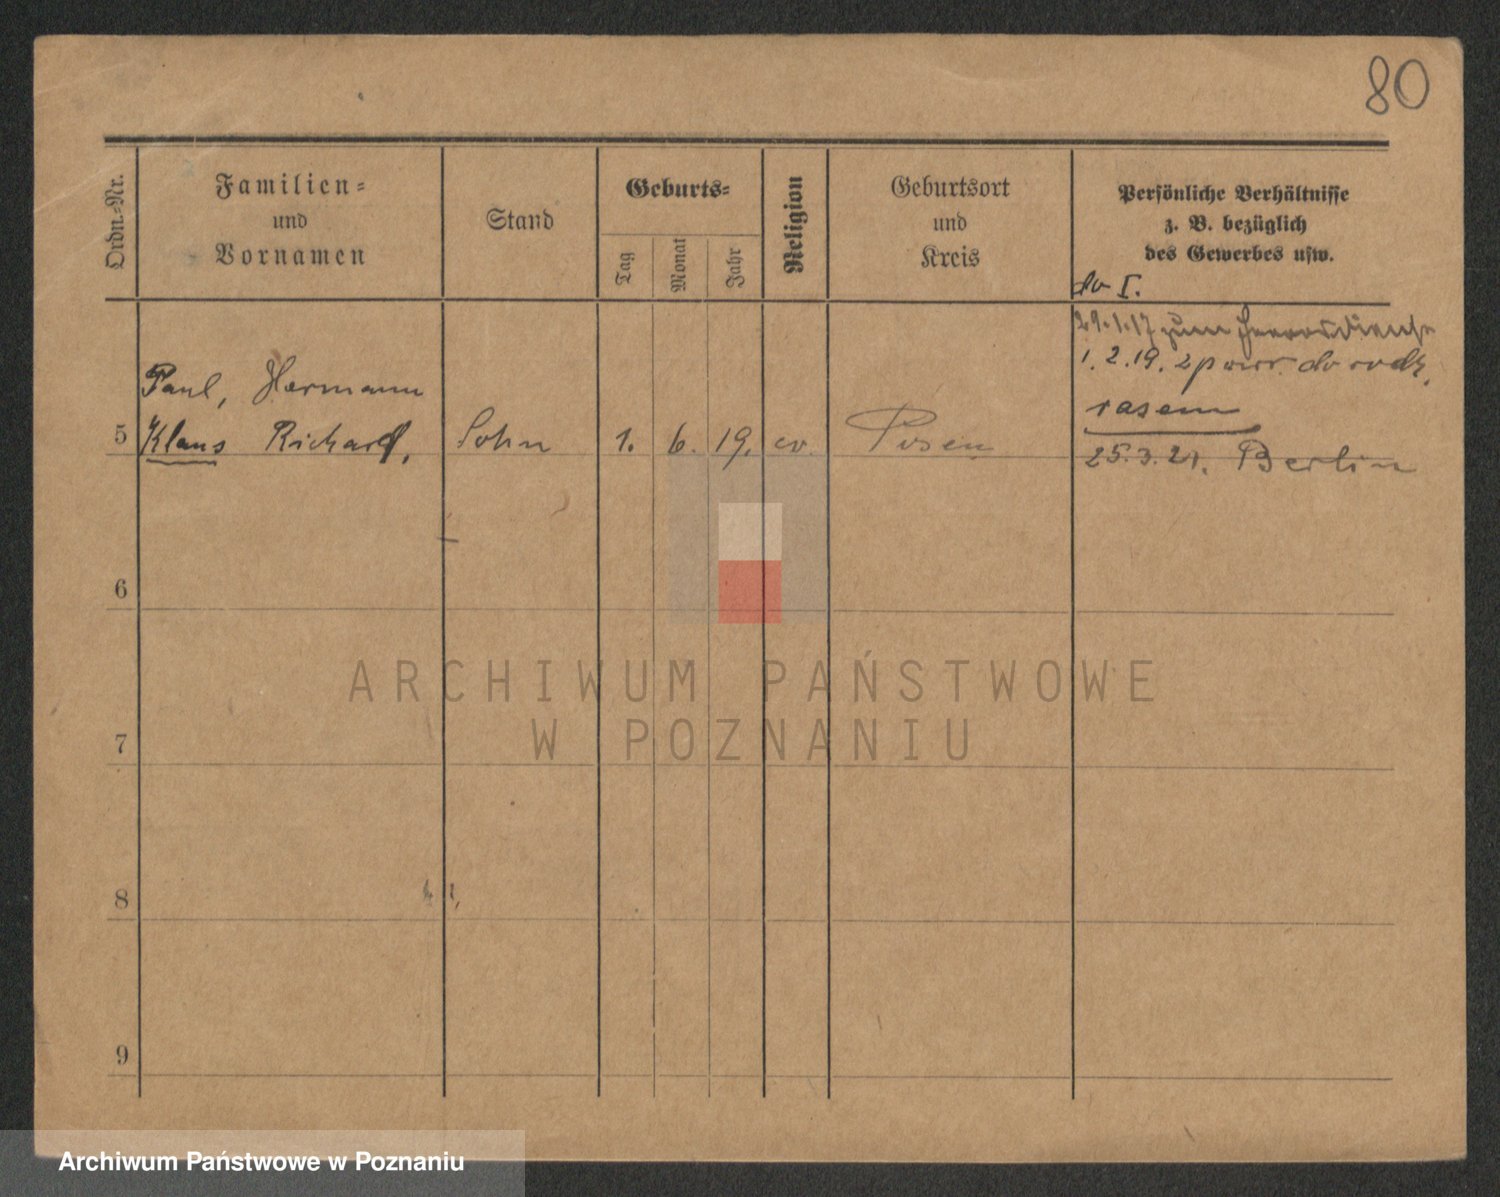 80
Ordn.-Nr.
Familien-
und
Vornamen
Stand
Geburts-
Tag
Monat
Jahr
Religion
Geburtsort
und
Kreis
Persönliche Verhältnisse
z. B. bezüglich
des Gewerbes usw.
do I.
29.1.17 zum Heeresdienst
1.2.19.
5
Paul, Hermann
Klaus Richard,
Sohn
1.
6.
19.
ev.
Posen
razem
25.3.21. Berlin
6
7
8
9
ARCHIWUM PAŃSTWOWE
W POZNANIU
Archiwum Państwowe w Poznaniu